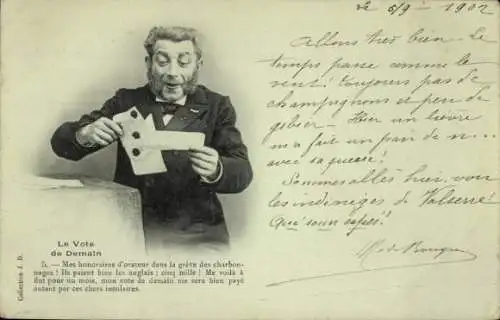 Le 5/9 - 1902
Allons très bien - Le
temps passe comme le
vent! toujours pas de
champignons et peu de
gibier - Hier un lièvre
m'a fait un pair de n...
avec sa queue!
Sommes allés hier voir
les indigènes de Valserre
Le Vote
de Demain
5. — Mes honoraires d'orateur dans la grève des charbon-
nages! Ils paient bien les anglais; cinq mille! Me voilà à
flot pour un mois, mon vote de demain me sera bien payé
autant par ces chers similaires.
Collection J. D.